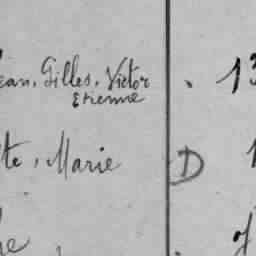 ean, Gilles, Victor . 13
Etienne
te, Marie D 1